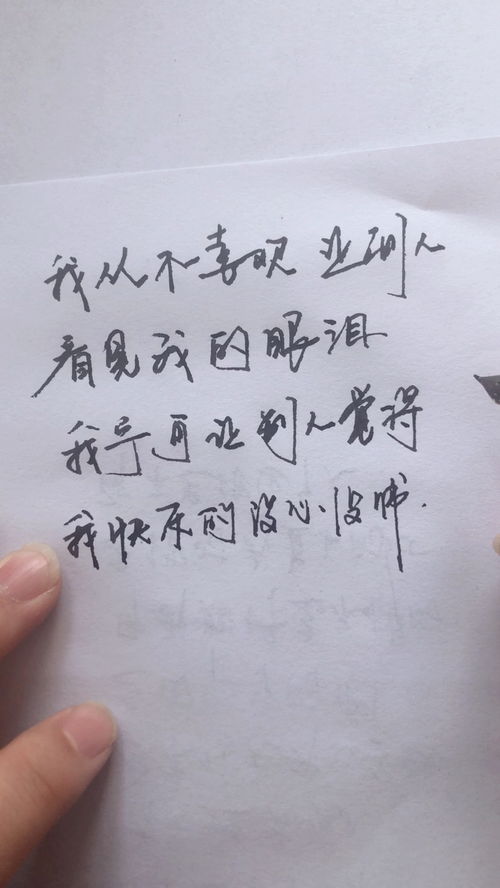 我从不喜欢让别人
看见我的眼泪
我宁可让别人觉得
我快乐的没心没肺.